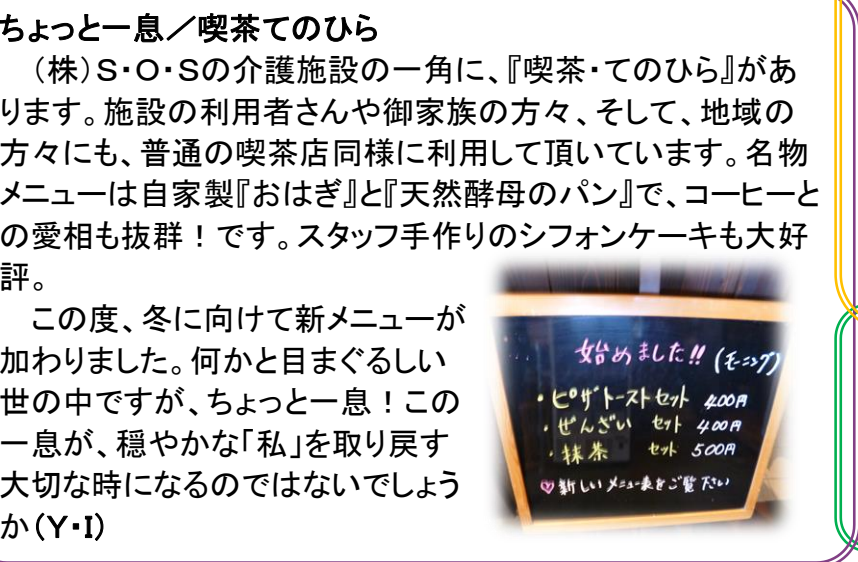 ちょっと一息／喫茶てのひら
（株）S・O・Sの介護施設の一角に、『喫茶・てのひら』があ
ります。施設の利用者さんや御家族の方々、そして、地域の
方々にも、普通の喫茶店同様に利用して頂いています。名物
メニューは自家製『おはぎ』と『天然酵母のパン』で、コーヒーと
の愛相も抜群！です。スタッフ手作りのシフォンケーキも大好
評。
この度、冬に向けて新メニューが
加わりました。何かと目まぐるしい
世の中ですが、ちょっと一息！この
一息が、穏やかな「私」を取り戻す
大切な時になるのではないでしょう
か（Y・I）
始めました!! (モーニング)
・ピザトーストセット 400円
・ぜんざい セット 400円
・抹茶 セット 500円
♡新しいメニュー表をご覧下さい